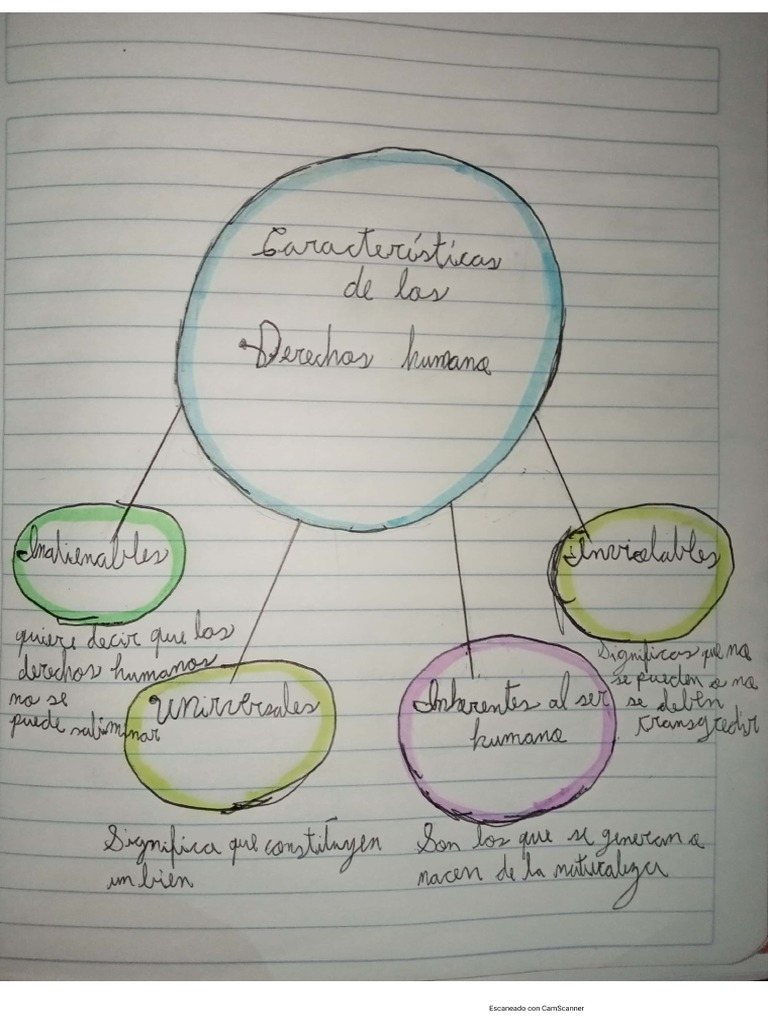 Características
de los
Derechos humano
Inalienables
quiere decir que los
derechos humanos
no se
puede
Universales
Significa que constituyen
un bien
Inherentes al ser
humano
Son los que se generan o
nacen de la naturaleza
Inviolables
Significas que no
se pueden o no
se deben
transgredir
Escaneado con CamScanner